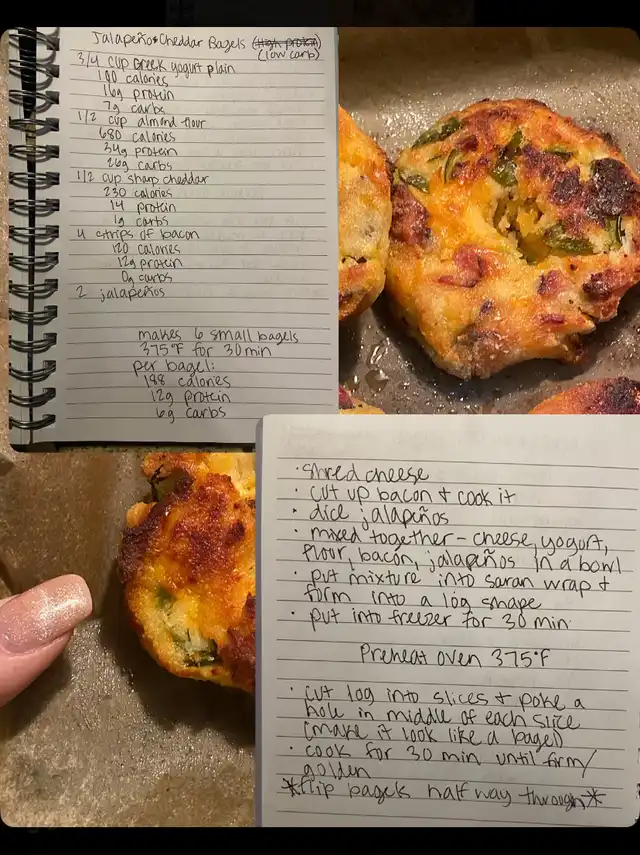 Jalapeños Cheddar Bagels (High protein)
(low carb)
3/4 cup Greek yogurt plain
100 calories
16g protein
7g carbs
1/2 cup almond flour
680 calories
34g protein
26g carbs
1/2 cup sharp cheddar
230 calories
14 protein
1g carbs
4 strips of bacon
120 calories
12g protein
0g carbs
2 jalapeños
makes 6 small bagels
375°F for 30 min
per bagel:
188 calories
12g protein
6g carbs
· shred cheese
· cut up bacon + cook it
· dice jalapeños
· mixed together - cheese, yogurt,
flour, bacon, jalapeños in a bowl
· put mixture into saran wrap +
form into a log shape
· put into freezer for 30 min
Preheat oven 375°F
· cut log into slices + poke a
hole in middle of each slice
(make it look like a bagel)
· cook for 30 min until firm/
golden
*flip bagels half way through*